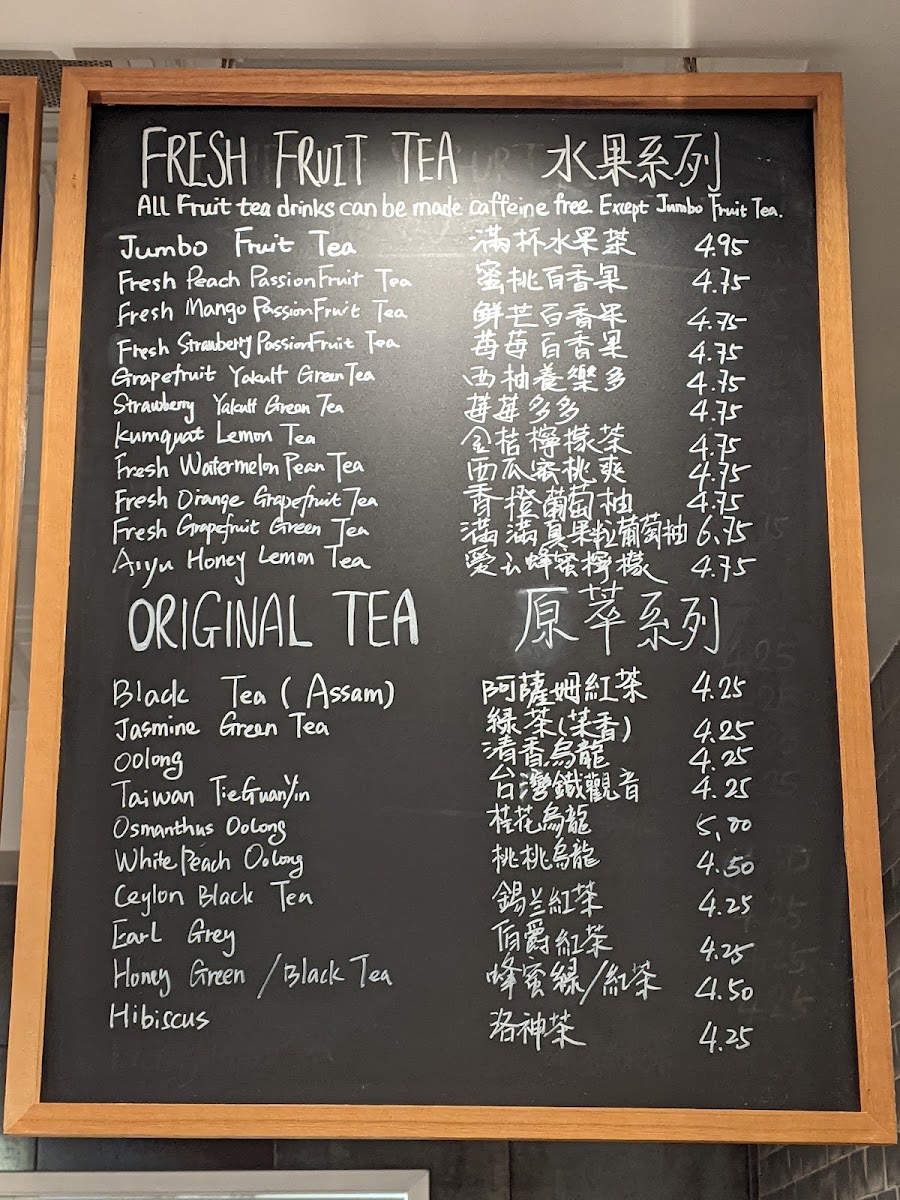 FRESH FRUIT TEA 水果系列
All Fruit tea drinks can be made caffeine free Except Jumbo Fruit Tea.
Jumbo Fruit Tea 滿杯水果茶 4.95
Fresh Peach PassionFruit Tea 蜜桃百香果 4.75
Fresh Mango PassionFruit Tea 鮮芒百香果 4.75
Fresh Strawberry PassionFruit Tea 莓莓百香果 4.75
Grapefruit Yakult Green Tea 西柚養樂多 4.75
Strawberry Yakult Green Tea 莓莓多多 4.75
Kumquat Lemon Tea 金桔檸檬茶 4.75
Fresh Watermelon Pean Tea 西瓜蜜桃爽 4.75
Fresh Orange Grapefruit Tea 香橙葡萄柚 4.75
Fresh Grapefruit Green Tea 滿滿真果粒葡萄柚 6.75
Aiyu Honey Lemon Tea 愛玉蜂蜜檸檬 4.75
ORIGINAL TEA 原萃系列
Black Tea (Assam) 阿薩姆紅茶 4.25
Jasmine Green Tea 綠茶(茉香) 4.25
Oolong 清香烏龍 4.25
Taiwan TieGuanYin 台灣鐵觀音 4.25
Osmanthus Oolong 桂花烏龍 5.00
White Peach Oolong 桃桃烏龍 4.50
Ceylon Black Tea 錫兰紅茶 4.25
Earl Grey 伯爵紅茶 4.25
Honey Green / Black Tea 蜂蜜綠/紅茶 4.50
Hibiscus 洛神茶 4.25